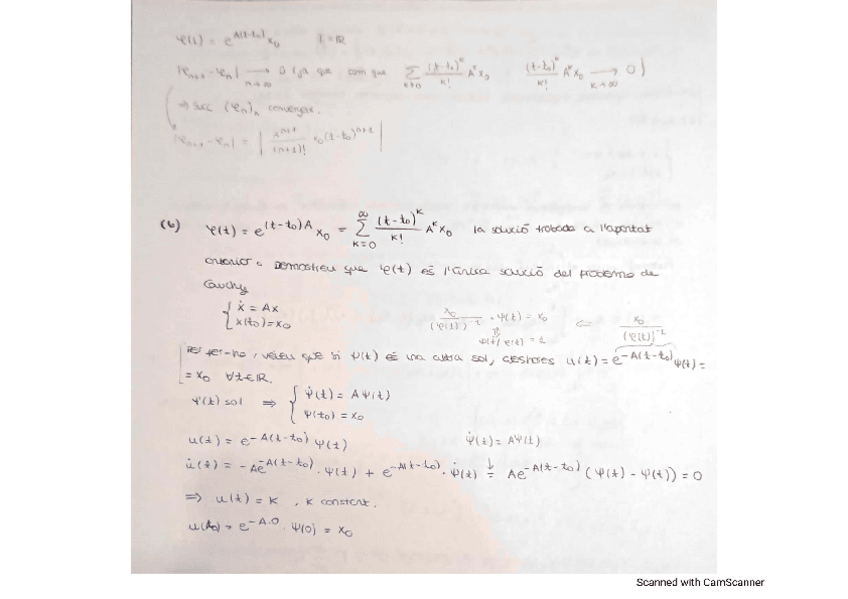 φ(t) = e^{A(t-t₀)} x₀   I = ℝ
|φₙ₊₁ - φₙ| ⟶ 0 (ja que com que ∑_{k≥0} (t-t₀)^k/k! A^k x₀   (t-t₀)^k/k! A^k x₀ ⟶ 0)
n→∞   k→∞
⇒ succ (φₙ)ₙ convergeix.
|φₙ₊₁ - φₙ| = | A^{n+1}/(n+1)! x₀ (t-t₀)^{n+1} |
(b) φ(t) = e^{(t-t₀)A} x₀ = ∑_{k=0}^{∞} (t-t₀)^k/k! A^k x₀ la solució trobada a l'apartat
anterior. Demostreu que φ(t) és l'única solució del problema de
Cauchy
{ ẋ = Ax
x(t₀) = x₀
x₀/(φ(t))⁻¹ · ψ(t) = x₀ ⇐ x₀/(φ(t))⁻¹
ψ(t) φ(t) = 1
Per fer-ho, veieu que si ψ(t) és una altra sol, aleshores u(t) = e^{-A(t-t₀)} ψ(t) =
= x₀ ∀t∈ℝ.
ψ(t) sol ⇒ { ψ̇(t) = Aψ(t)
ψ(t₀) = x₀
u(t) = e^{-A(t-t₀)} ψ(t)   ψ̇(t) = Aψ(t)
u̇(t) = -Ae^{-A(t-t₀)} · ψ(t) + e^{-A(t-t₀)} · ψ̇(t) = Ae^{-A(t-t₀)} (ψ(t) - ψ(t)) = 0
⇒ u(t) = k , k constant.
u(t₀) = e^{-A·0} · ψ(0) = x₀
Scanned with CamScanner